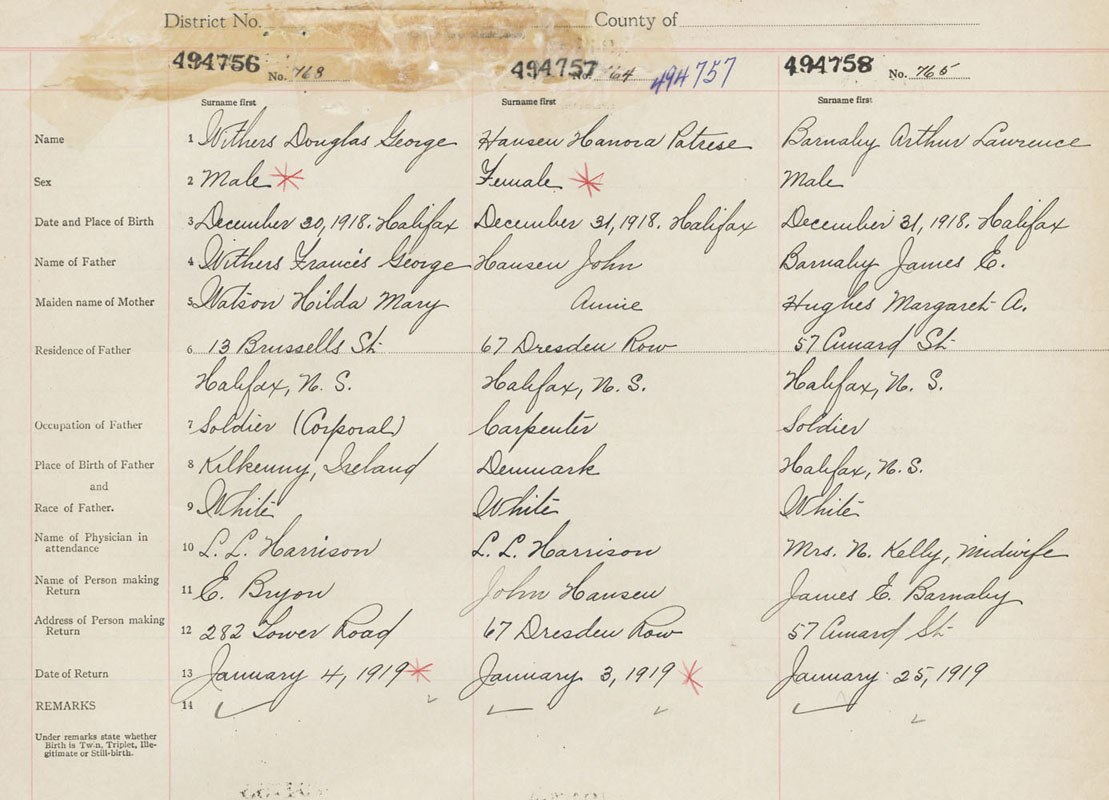 District No. County of
494756 No. 763 494757 No. 764 494757 494758 No. 765
Surname first Surname first Surname first
Name 1 Withers Douglas George Hansen Hanora Patrese Barnaby Arthur Lawrence
Sex 2 Male Female Male
Date and Place of Birth 3 December 30, 1918. Halifax December 31, 1918. Halifax December 31, 1918. Halifax
Name of Father 4 Withers Francis George Hansen John Barnaby James E.
Maiden name of Mother 5 Watson Hilda Mary Annie Hughes Margaret A.
Residence of Father 6 13 Brussells St. 67 Dresden Row 57 Cunard St.
Halifax, N. S. Halifax, N. S. Halifax, N. S.
Occupation of Father 7 Soldier (Corporal) Carpenter Soldier
Place of Birth of Father 8 Kilkenny, Ireland Denmark Halifax, N. S.
and
Race of Father. 9 White White White
Name of Physician in
attendance 10 L. L. Harrison L. L. Harrison Mrs. N. Kelly, Midwife
Name of Person making
Return 11 E. Bryon John Hansen James E. Barnaby
Address of Person making
Return 12 282 Tower Road 67 Dresden Row 57 Cunard St.
Date of Return 13 January 4, 1919 January 3, 1919 January 25, 1919
REMARKS 14
Under remarks state whether
Birth is Twin, Triplet, Ille-
gitimate or Still-birth.